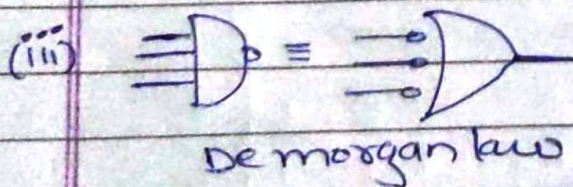 (iii) ≡
De morgan law